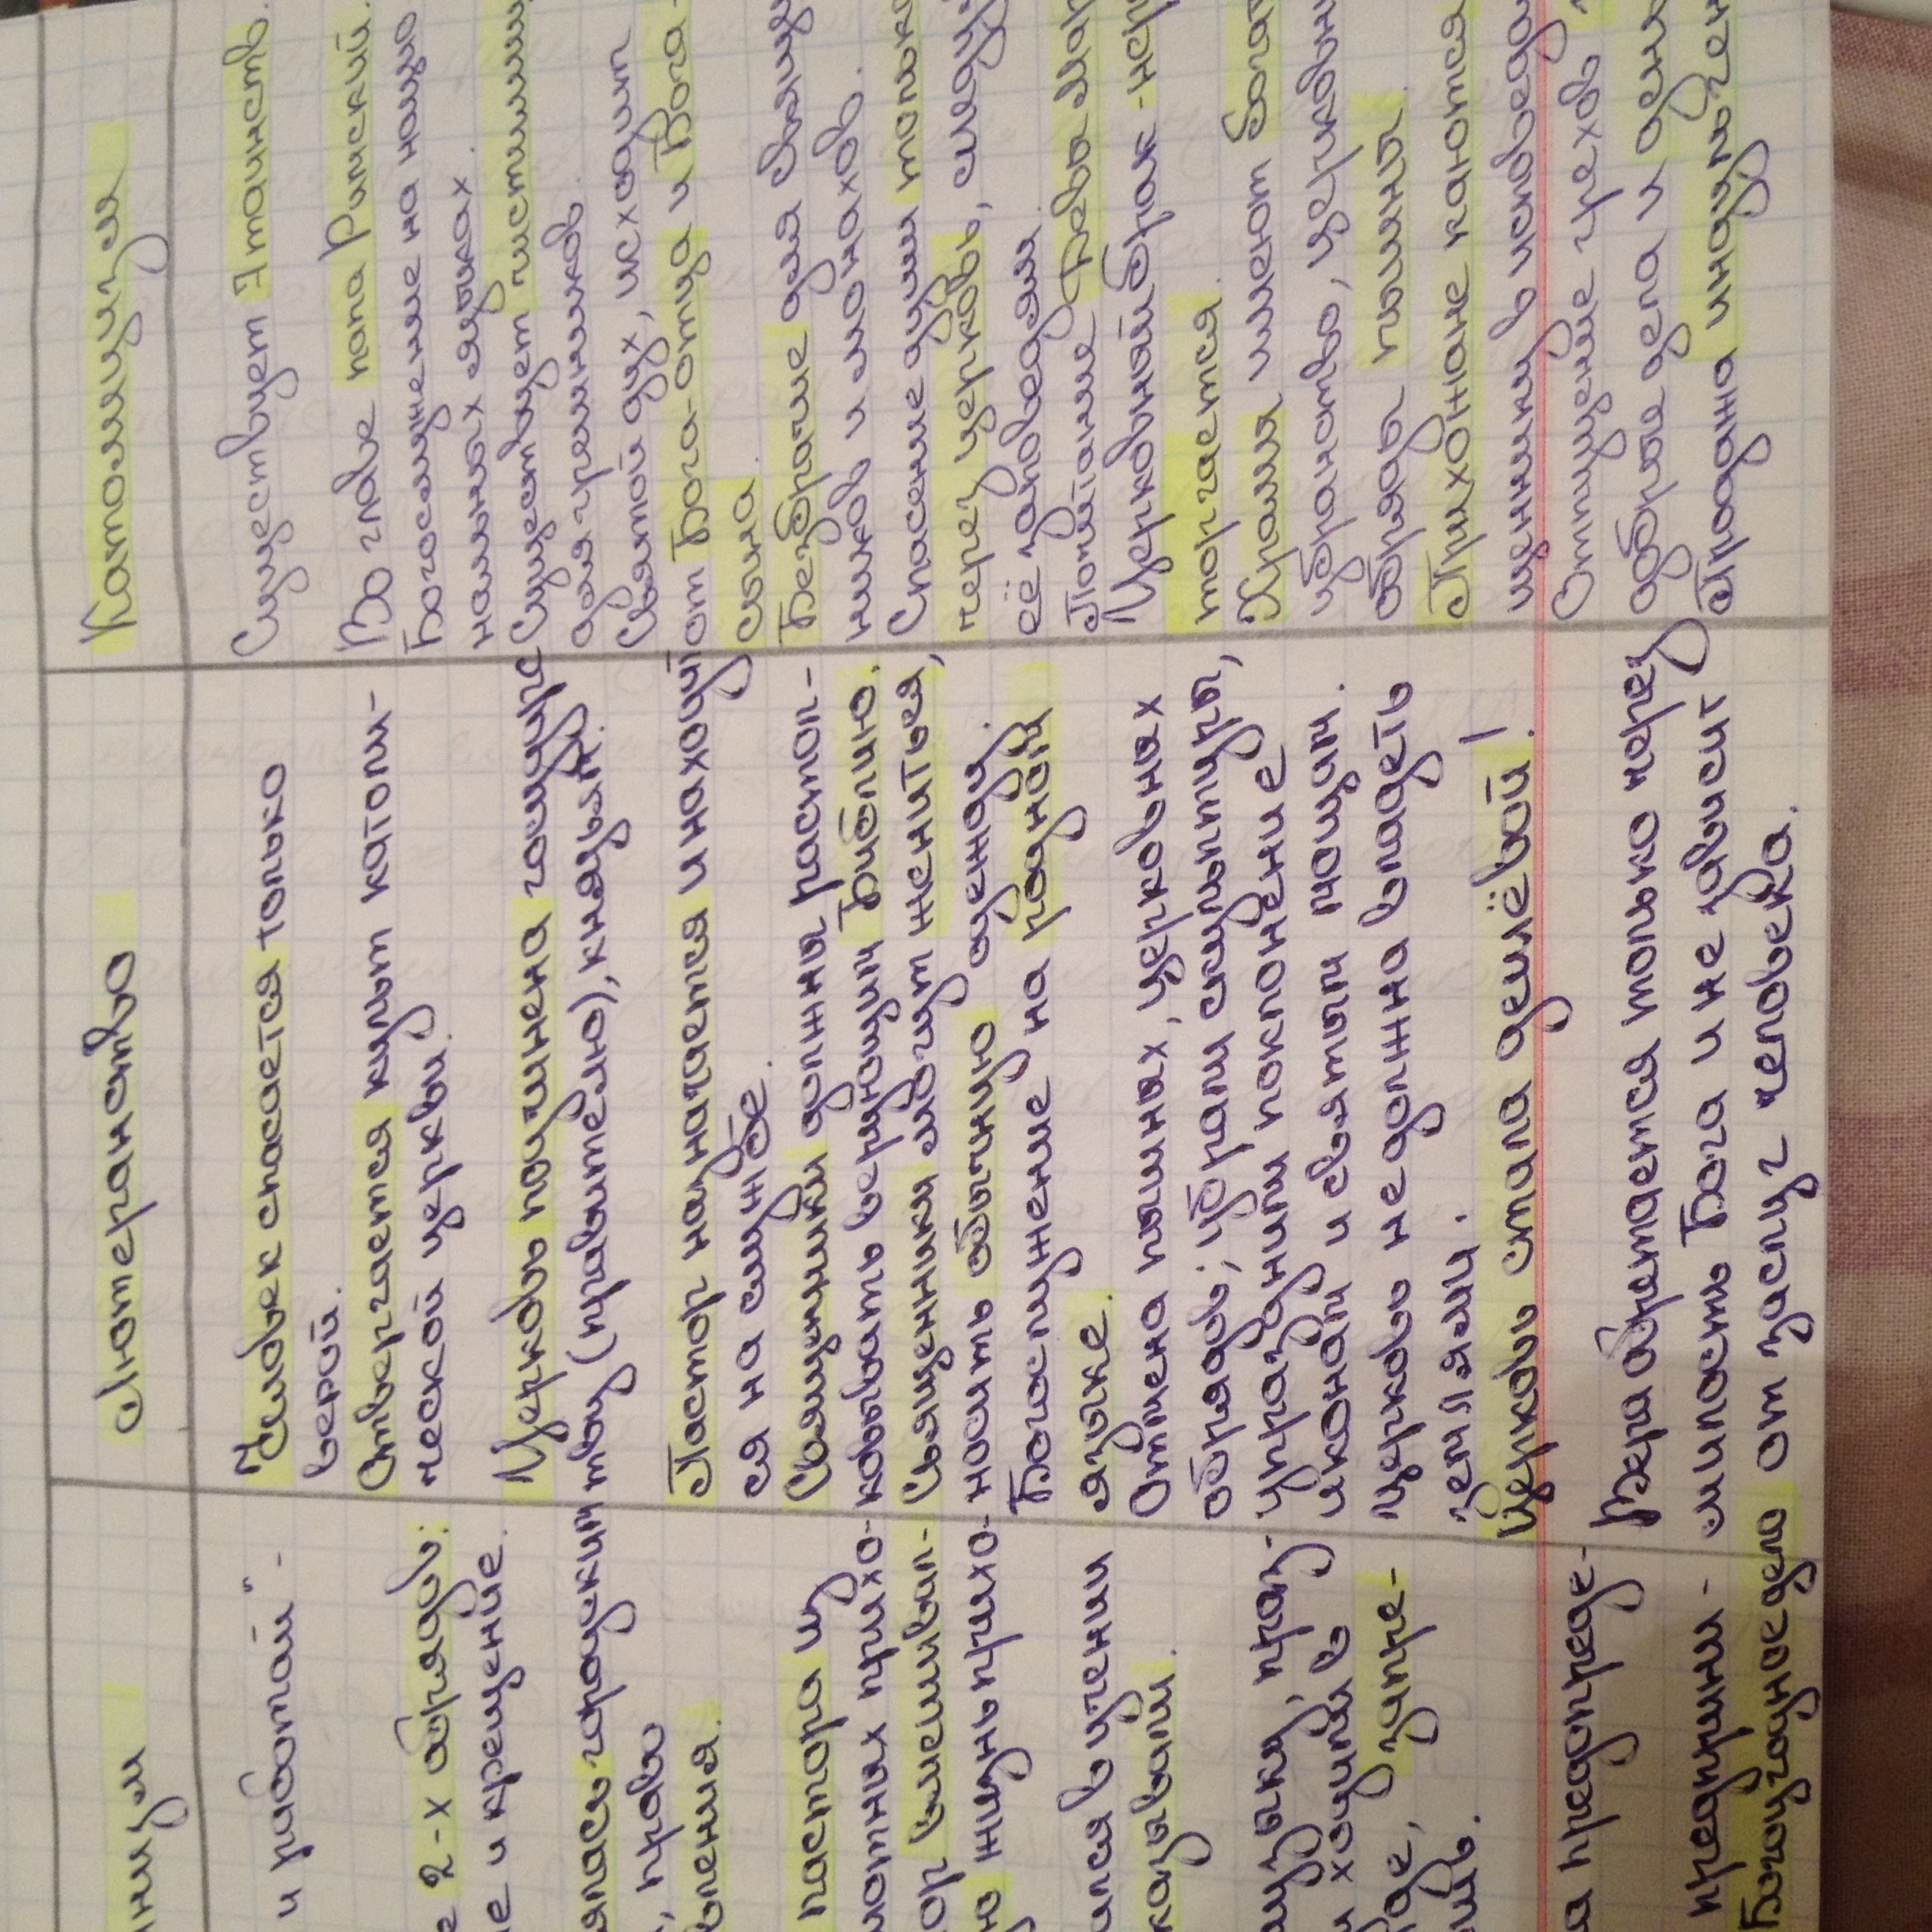 низм
и работай" -
2-х обрядов:
е и крещение.
лась городским
, право
вления.
пастора из
лотных прихо-
ор вмешивал-
ю жизнь прихо-
ался в учении
казывали.
музыка, праз-
и ходить в
запре-
а предопреде-
предприим-
Богоугодное дело
Лютеранство
Человек спасается только
верой.
Отвергается культ католи-
ческой церкви.
Церковь подчинена государс
тву (правителю), князьям.
Пастор назначается и находит
ся на службе.
Священники должны растол-
ковывать верующим Библию.
Священники могут жениться,
носить обычную одежду.
Богослужение на родном
языке.
Отмена пышных, церковных
обрядов; убрали скульптуры,
упразднили поклонение
иконам и святым мощам.
Церковь не должна владеть
землями.
Церковь стала дешёвой!
Вера обретается только через
милость Бога и не зависит
от заслуг человека.
Католицизм
Существует 7 таинств.
Во главе папа Римский.
Богослужение на нацио
нальных языках.
Существует чистилищ
для грешников.
Святой дух, исходит
от Бога-отца и Бога-
сына.
Безбрачие для свящ
ников и монахов.
Спасение души только
через церковь, следу
её заповедям.
Почитание Девы Мар
Церковный брак - нер
торгается.
Храм имеют богат
убранство, церковн
обряды пышны.
Прихожане каются
щеннику в исповеда
Отпущение грехов
добрые дела и день
Продажа индульген